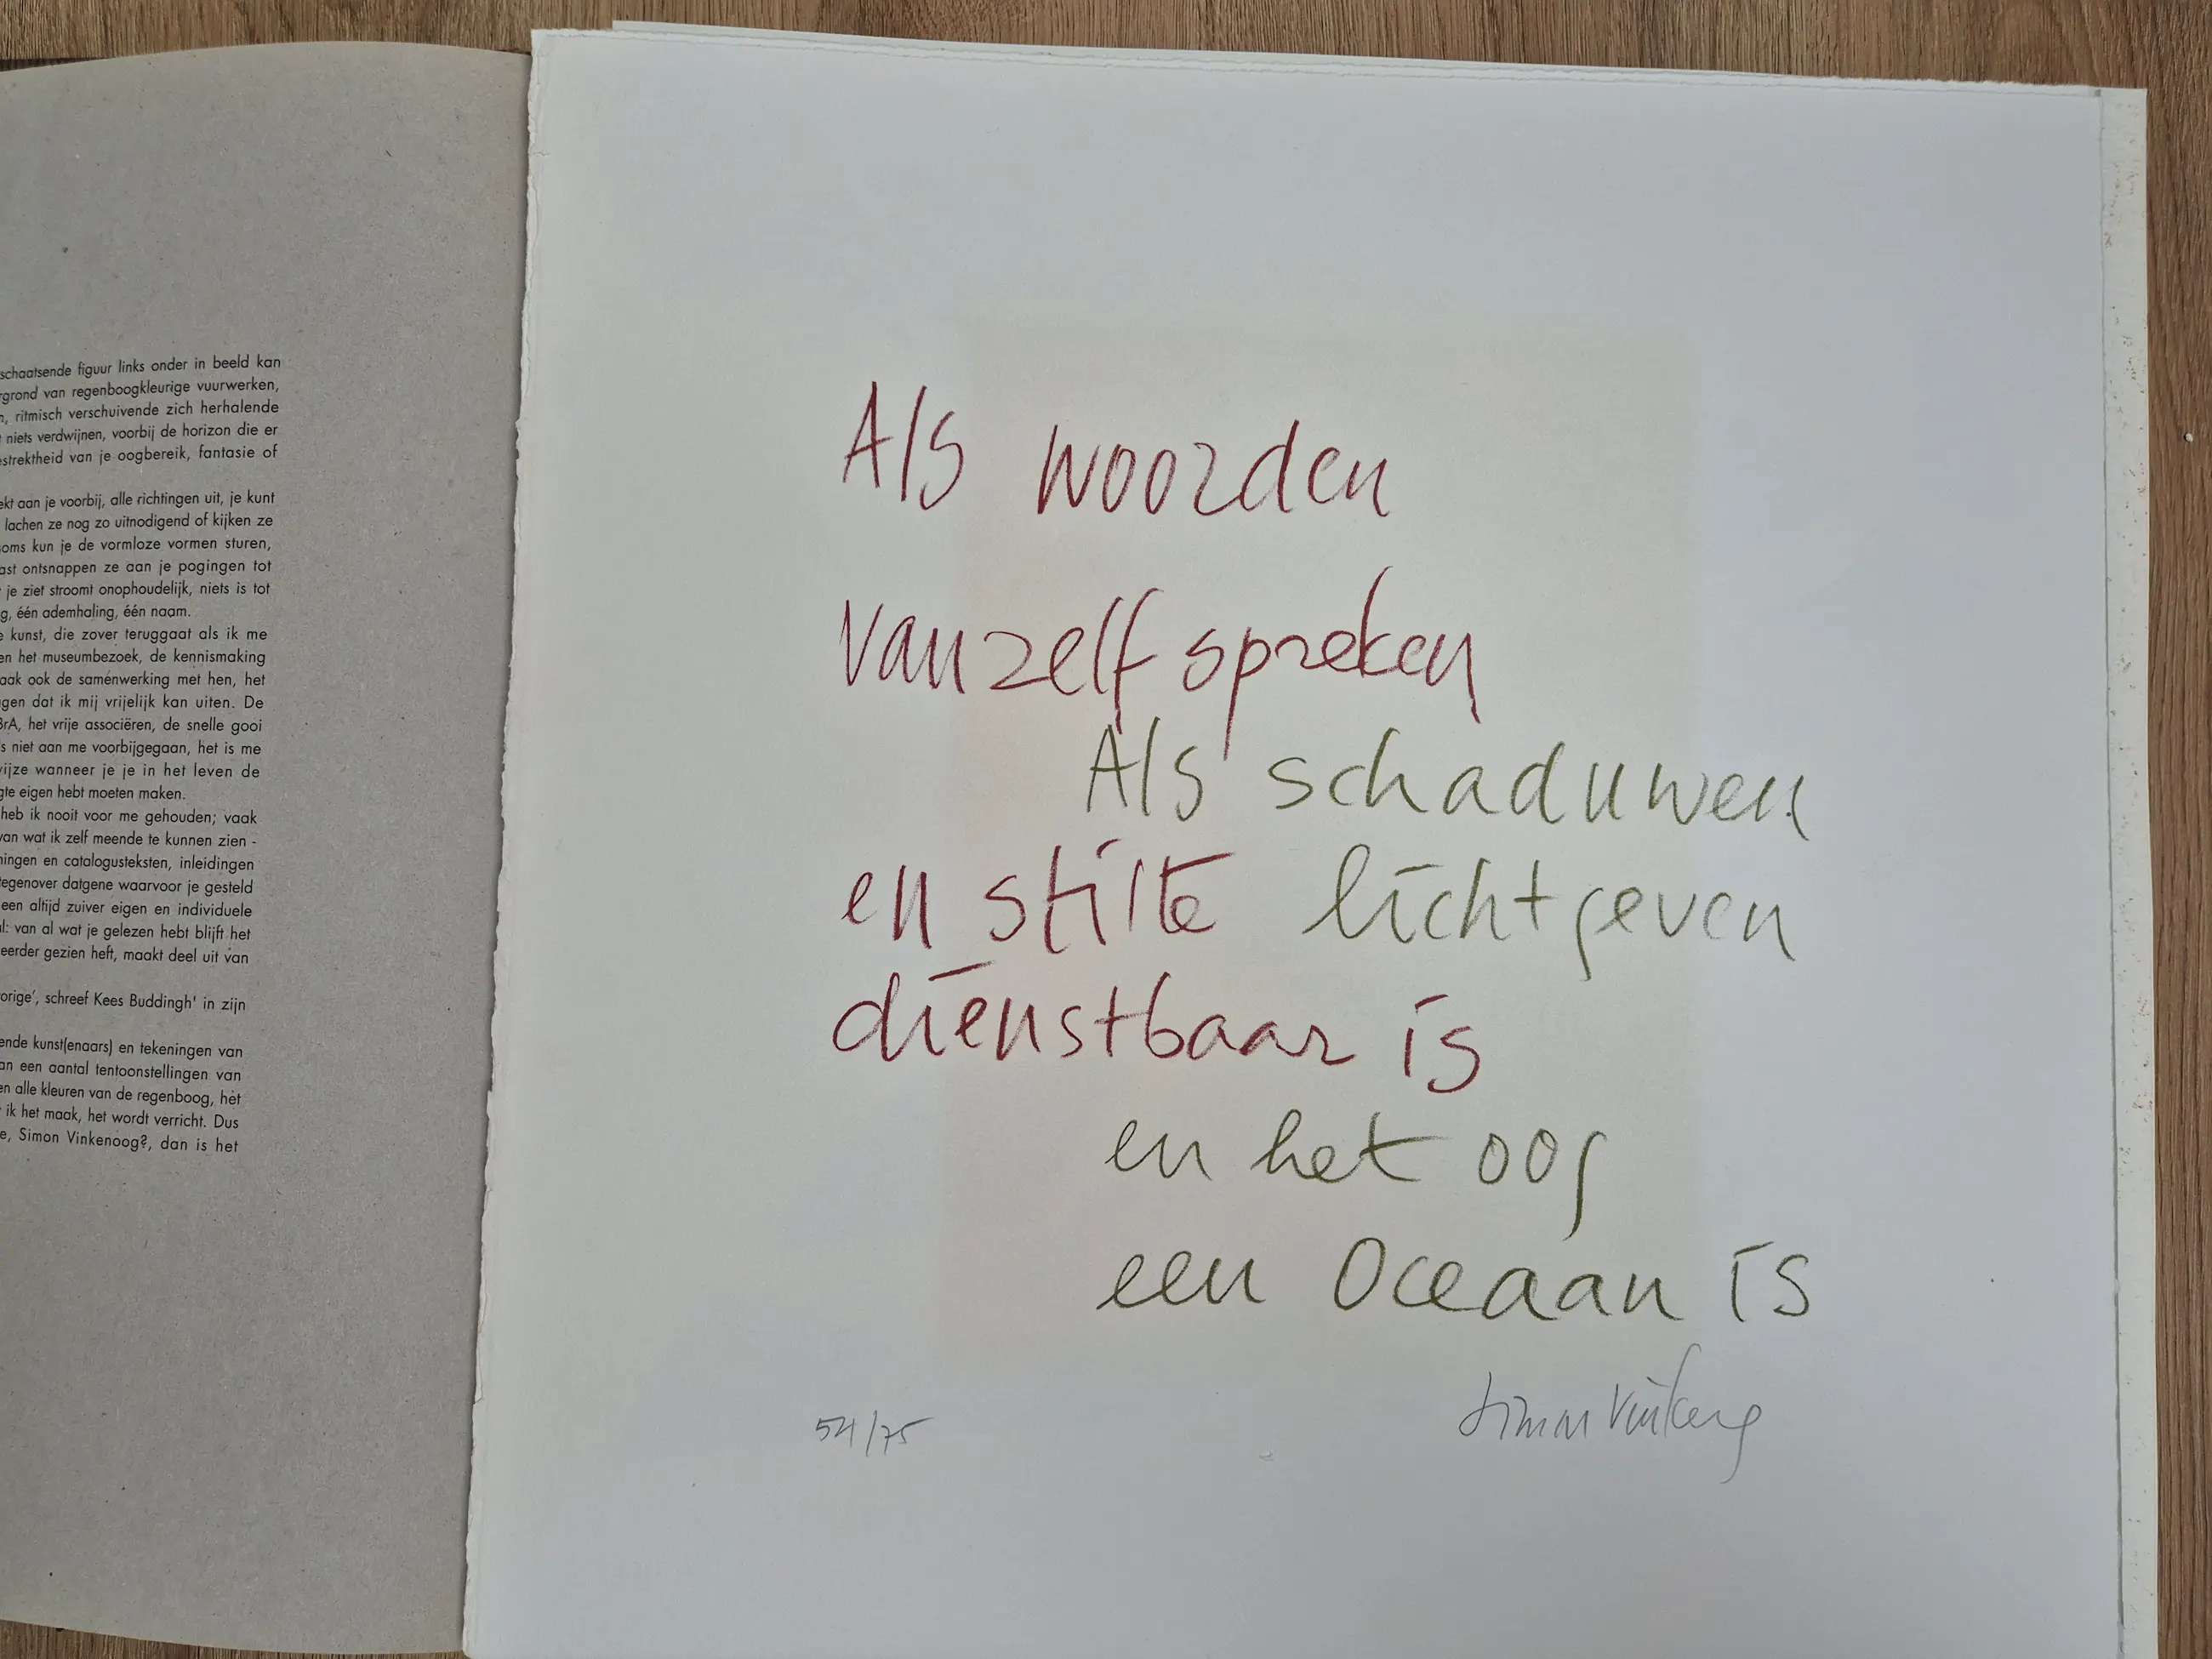 schaatsende figuur links onder in beeld kan
rgrond van regenboogkleurige vuurwerken,
n, ritmisch verschuivende zich herhalende
niets verdwijnen, voorbij de horizon die er
estrektheid van je oogbereik, fantasie of
ekt aan je voorbij, alle richtingen uit, je kunt
lachen ze nog zo uitnodigend of kijken ze
oms kun je de vormloze vormen sturen,
ast ontsnappen ze aan je pogingen tot
je ziet stroomt onophoudelijk, niets is tot
g, één ademhaling, één naam.
e kunst, die zover teruggaat als ik me
en het museumbezoek, de kennismaking
aak ook de samenwerking met hen, het
gen dat ik mij vrijelijk kan uiten. De
BrA, het vrije associëren, de snelle gooi
s niet aan me voorbijgegaan, het is me
vijze wanneer je je in het leven de
gte eigen hebt moeten maken.
heb ik nooit voor me gehouden; vaak
van wat ik zelf meende te kunnen zien -
ningen en catalogusteksten, inleidingen
tegenover datgene waarvoor je gesteld
een altijd zuiver eigen en individuele
al: van al wat je gelezen hebt blijft het
eerder gezien heft, maakt deel uit van
orige', schreef Kees Buddingh' in zijn
ende kunst(enaars) en tekeningen van
an een aantal tentoonstellingen van
en alle kleuren van de regenboog, hét
ik het maak, het wordt verricht. Dus
e, Simon Vinkenoog?, dan is het
Als woorden
vanzelf spreken
Als schaduwen
en stilte lichtgeven
dienstbaar is
en het oog
een Oceaan is
54/75
Simon Vinkenoog